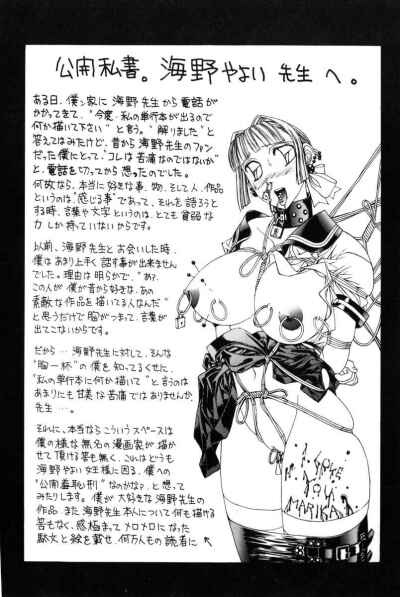 公開私書。海野やよい先生へ。
ある日、僕ン家に海野先生から電話が
かかってきて、“今度、私の単行本が出るので
何か描いて下さい”と言う。“解りました”と
答えてはみたけど、昔から海野先生のファン
だった僕にとって、“コレは苦痛なのではないか”
と、電話を切ってから思ったのでした。
何故なら、本当に好きな事、物、そして人、作品
というのは、“感じる事”であって、それを語ろうと
する時、言葉や文字というのは、とても貧弱な
力しか持っていないからです。
以前、海野先生とお会いした時、
僕はあまり上手く話す事が出来ません
でした。理由は明らかで、“あ?、
この人が僕が昔から好きな、あの
素敵な作品を描いてる人なんだ”
と思うだけで胸がつまって、言葉が
出てこないからです。
だから…海野先生に対して、そんな
“胸一杯”の僕を知っててくせに、
“私の単行本に何か描いて”と言うのは
あまりにも甘美な苦痛ではありませんか、
先生…。
それに、本当ならこういうスペースは
僕の様な無名の漫画家が描か
せて頂ける筈も無く、これはどうも
海野やよい女王様に因る、僕への
“公開羞恥刑”なのかな?、と思って
みたりします。僕が大好きな海野先生の
作品、また海野先生本人について何も描ける
筈もなく、感極まってメロメロになった
駄文と絵を載せ、何万人もの読者に
I LOVE
YOU
MARIKA